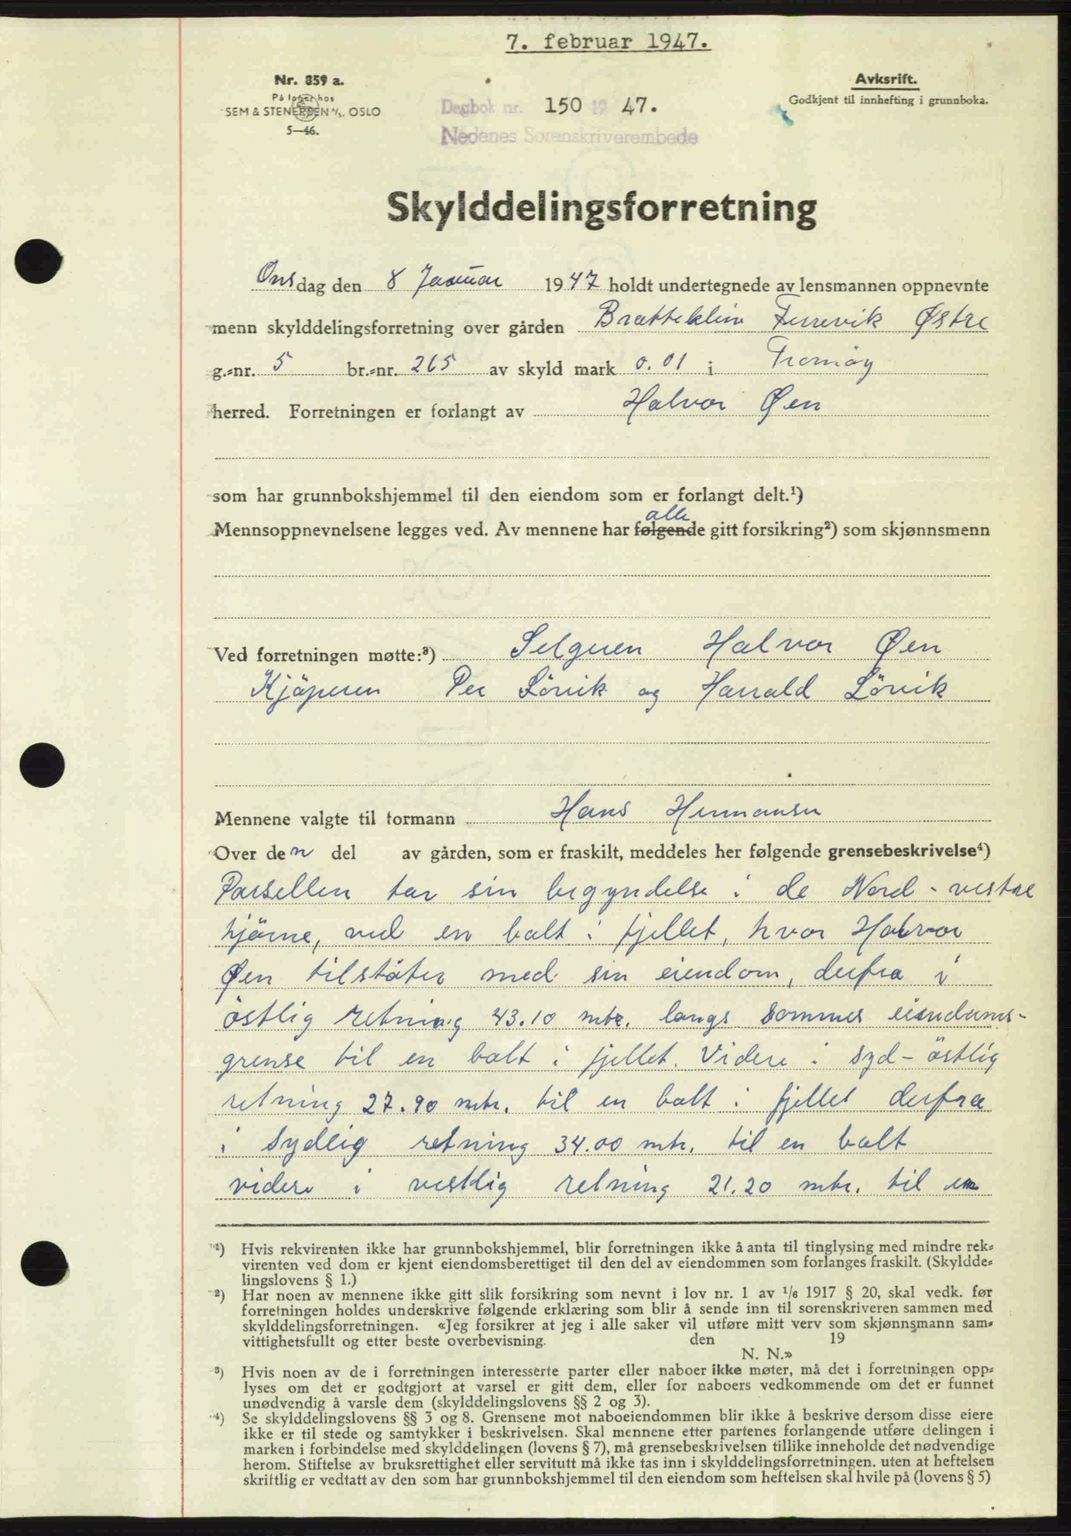 7. februar 1947.
Nr. 859 a.
På lager hos
SEM & STENERSEN A/S. OSLO
5—46.
Dagbok nr. 150 19 47.
Nedenes Sorenskriverembede
Avksrift.
Godkjent til innhefting i grunnboka.
Skylddelingsforretning
Onsdag den 8 Januar 1947 holdt undertegnede av lensmannen oppnevnte
menn skylddelingsforretning over gården Bratteklev Færevik Østre
g.-nr. 5 br.-nr. 265 av skyld mark 0.01 i Tromøy
herred. Forretningen er forlangt av Halvor Øen
som har grunnbokshjemmel til den eiendom som er forlangt delt.¹)
alle
Mennsoppnevnelsene legges ved. Av mennene har følgende gitt forsikring²) som skjønnsmenn
Ved forretningen møtte:³) Selgeren Halvor Øen
Kjöperen Per Lövik og Harald Lövik
Mennene valgte til formann Hans Hermansen
Over den del av gården, som er fraskilt, meddeles her følgende grensebeskrivelse⁴)
Parsellen tar sin begyndelse i de Nord-vestre
hjörne, ved en bolt i fjellet, hvor Halvor
Øen tilstöter med sin eiendom, derfra i
östlig retning 43.10 mtr. langs sammes eiendums-
grense til en bolt i fjellet. Videre i syd-östlig
retning 27.90 mtr. til en bolt i fjellet derfra
i sydlig retning 34.00 mtr. til en bolt
videre i vestlig retning 21.20 mtr. til en
¹) Hvis rekvirenten ikke har grunnbokshjemmel, blir forretningen ikke å anta til tinglysing med mindre rek-
virenten ved dom er kjent eiendomsberettiget til den del av eiendommen som forlanges fraskilt. (Skyldde-
lingslovens § 1.)
²) Har noen av mennene ikke gitt slik forsikring som nevnt i lov nr. 1 av 1/6 1917 § 20, skal vedk. før
forretningen holdes underskrive følgende erklæring som blir å sende inn til sorenskriveren sammen med
skylddelingsforretningen. «Jeg forsikrer at jeg i alle saker vil utføre mitt verv som skjønnsmann sam-
vittighetsfullt og etter beste overbevisning. den 19
N. N.»
³) Hvis noen av de i forretningen interesserte parter eller naboer ikke møter, må det i forretningen opp-
lyses om det er godtgjort at varsel er gitt dem, eller for naboers vedkommende om det er funnet
unødvendig å varsle dem (skylddelingslovens §§ 2 og 3).
⁴) Se skylddelingslovens §§ 3 og 8. Grensene mot naboeiendommen blir ikke å beskrive dersom disse eiere
ikke er til stede og samtykker i beskrivelsen. Skal mennene etter partenes forlangende utføre delingen i
marken i forbindelse med skylddelingen (lovens § 7), må grensebeskrivelsen tillike inneholde det nødvendige
herom. Stiftelse av bruksrettighet eller servitutt må ikke tas inn i skylddelingsforretningen. uten at heftelsen
skriftlig er vedtatt av den som har grunnbokshjemmel til den eiendom som heftelsen skal hvile på (lovens § 5)